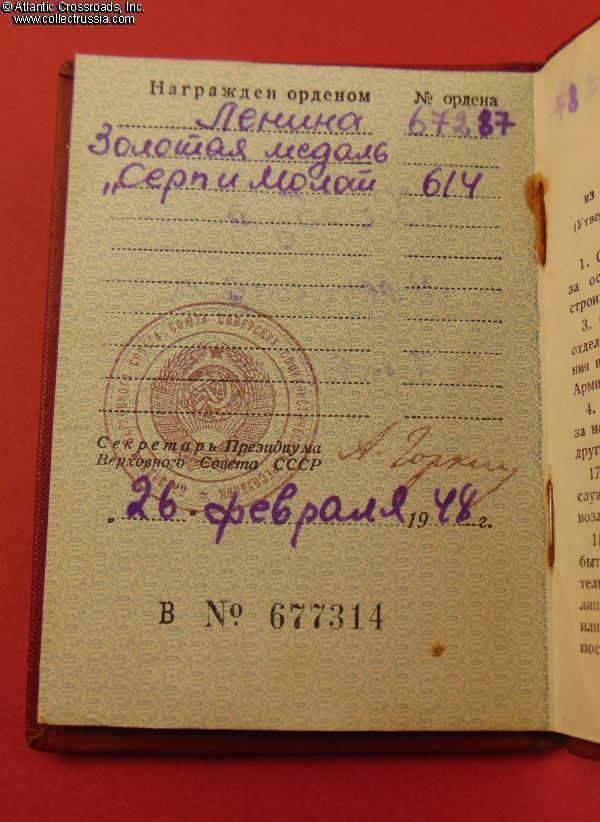 © Atlantic Crossroads, Inc.
www.collectrussia.com
Награжден орденом № ордена
Ленина 67287
Золотая медаль
„Серп и Молот 614
Секретарь Президиума
Верховного Совета СССР А. Горкин
„26. февраля 1948 г.
В № 677314
78
из
(Утве
1. С
за ос
строи
3.
отдел
ния и
Арми
4.
за не
друг
17
служ
возл
быт
тель
лиш
или
пос